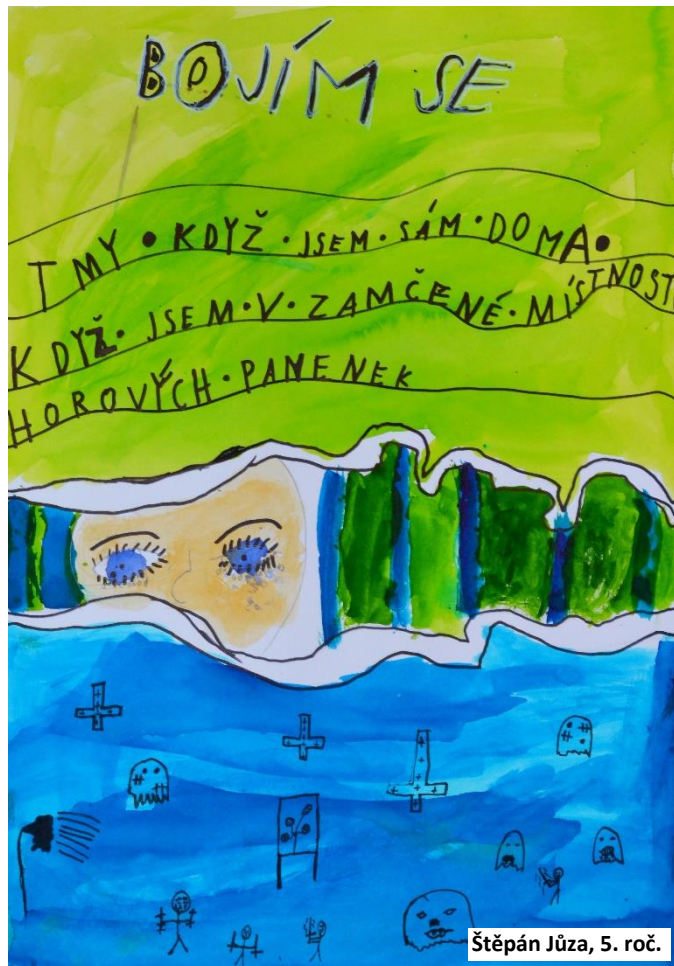 BOJÍM SE
TMY • KDYŽ • JSEM • SÁM • DOMA •
KDYŽ • JSEM • V • ZAMČENÉ • MÍSTNOSTI
HOROVÝCH • PANENEK
Štěpán Jůza, 5. roč.